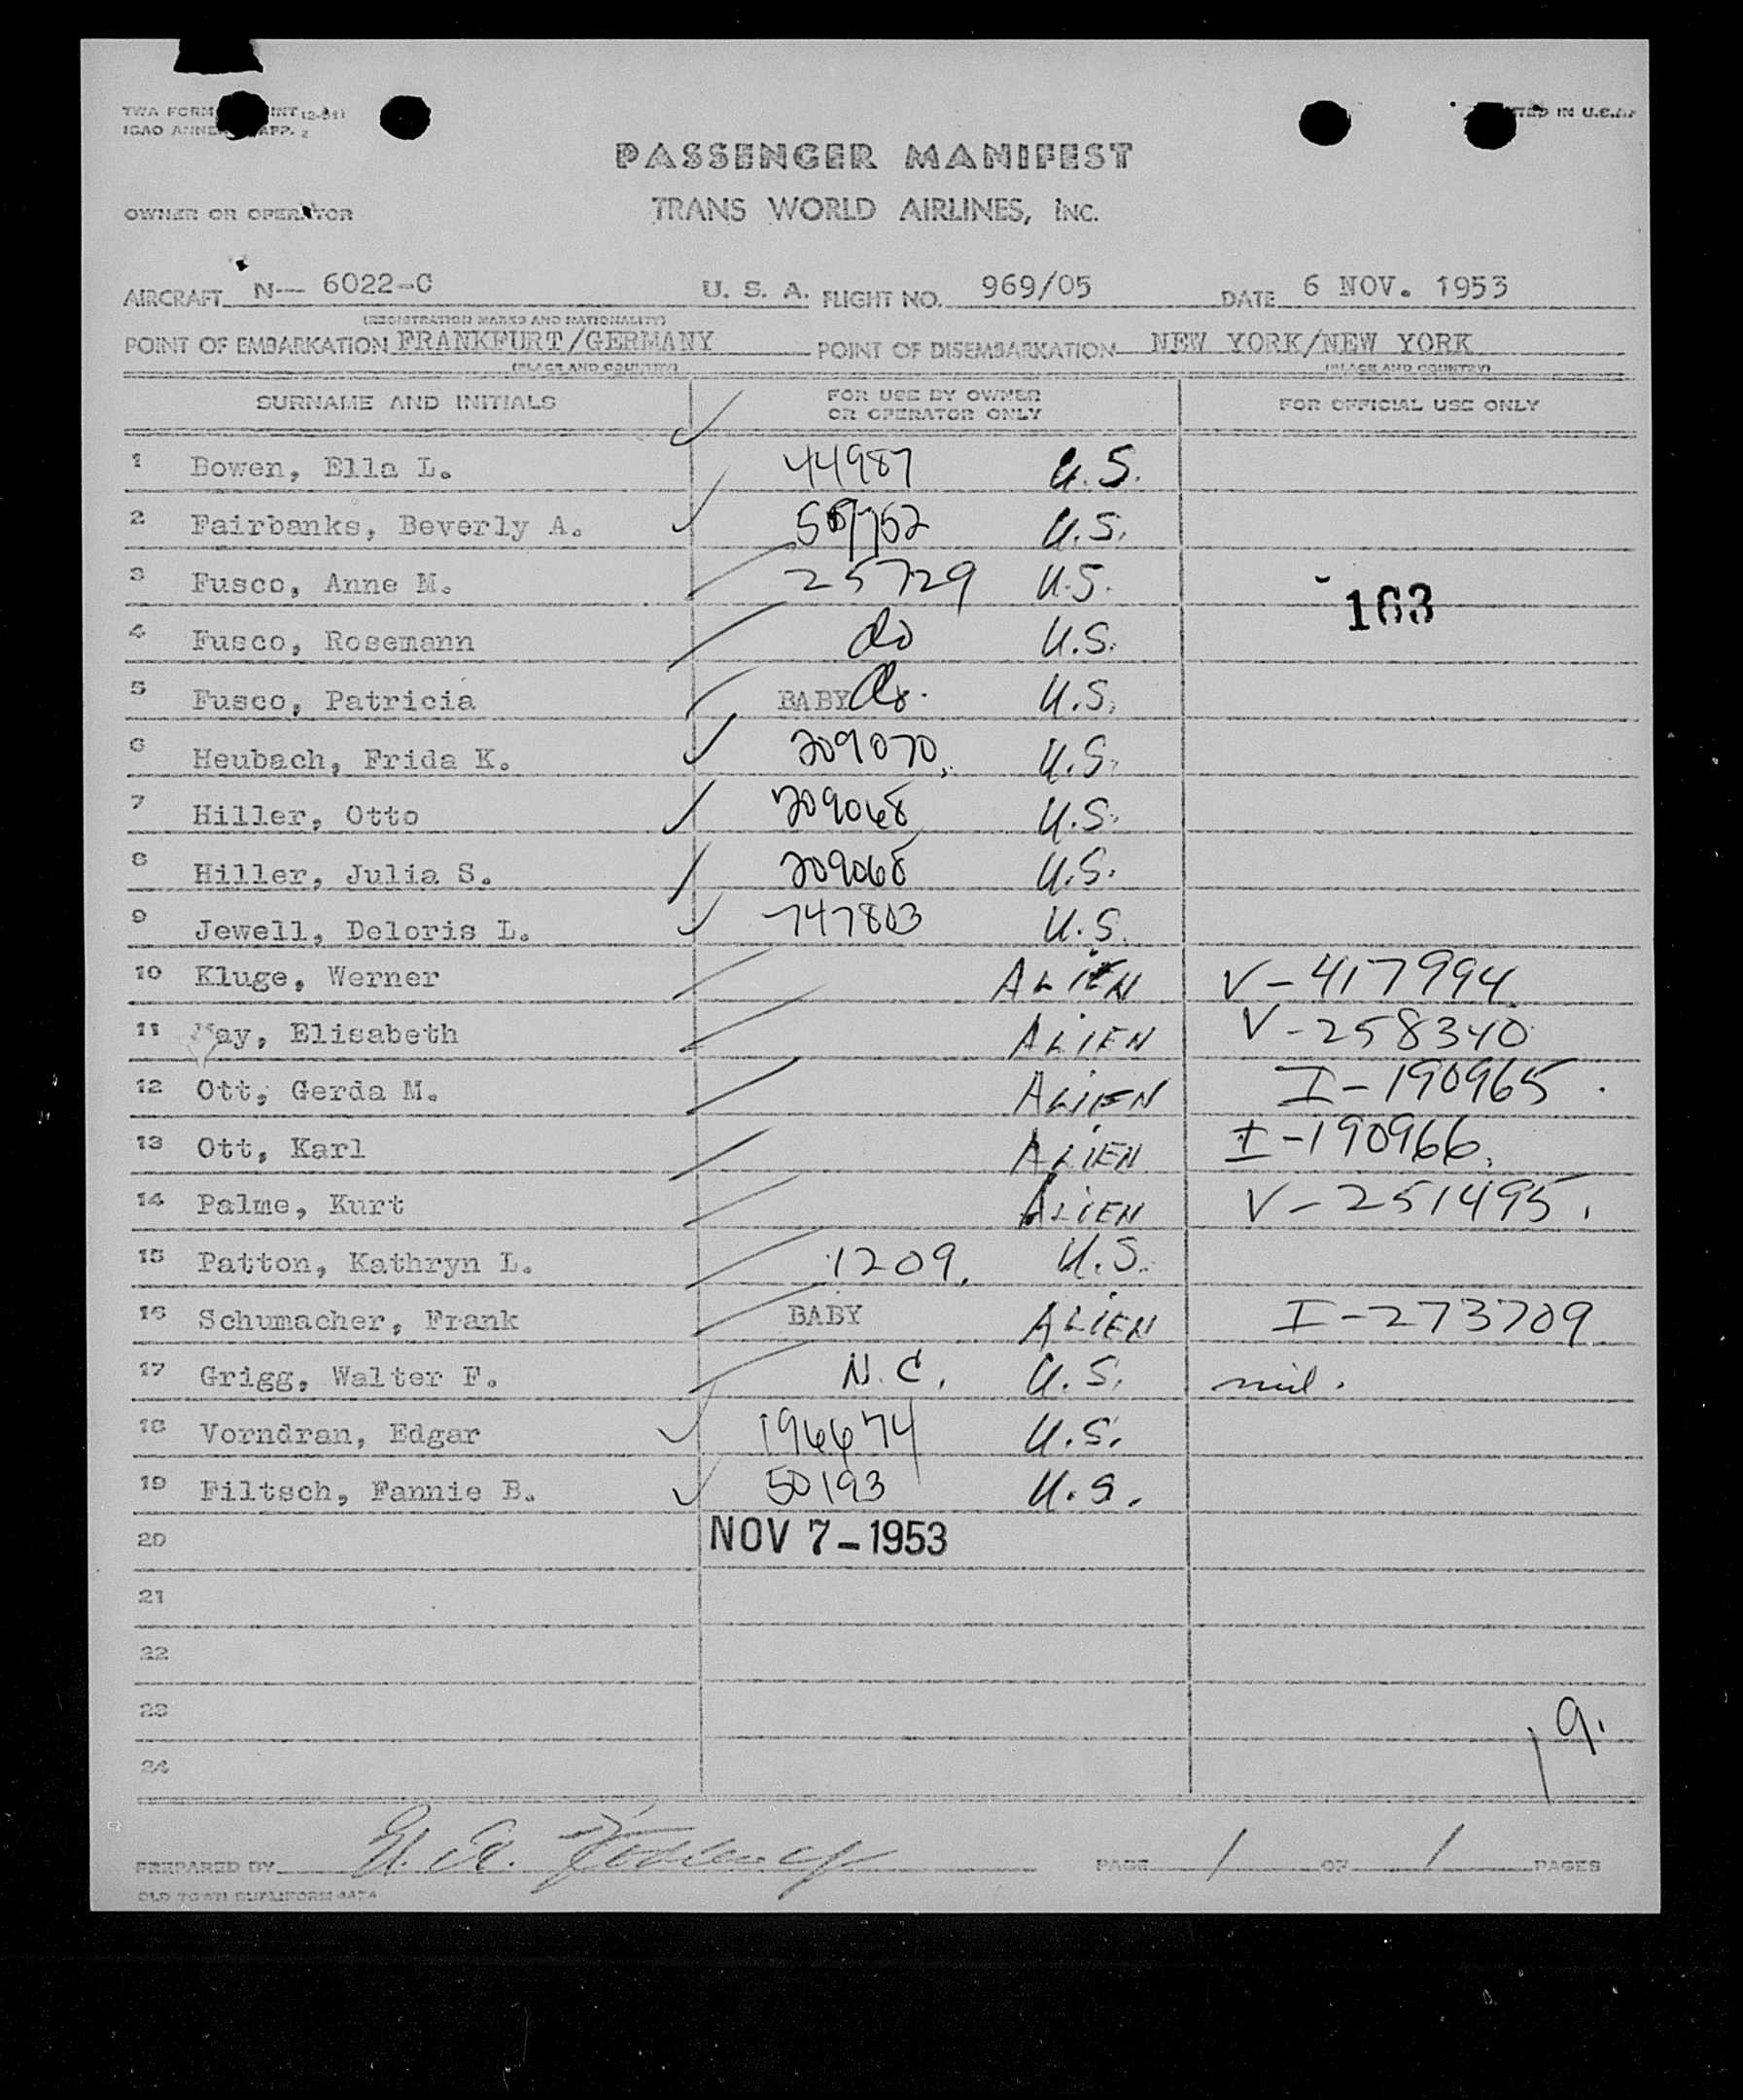 TWA FORM INT (2-51)
ICAO ANNEX APP. 2
PRINTED IN U.S.A.
PASSENGER MANIFEST
OWNER OR OPERATOR
TRANS WORLD AIRLINES, INC.
AIRCRAFT N-- 6022-C U. S. A. FLIGHT NO. 969/05 DATE 6 NOV. 1953
(REGISTRATION MARKS AND NATIONALITY)
POINT OF EMBARKATION FRANKFURT/GERMANY POINT OF DISEMBARKATION NEW YORK/NEW YORK
(PLACE AND COUNTRY) (PLACE AND COUNTRY)
SURNAME AND INITIALS FOR USE BY OWNER OR OPERATOR ONLY FOR OFFICIAL USE ONLY
1 Bowen, Ella L. 44987 U.S.
2 Fairbanks, Beverly A. U.S.
3 Fusco, Anne M. 25729 U.S.
163
4 Fusco, Rosemann do U.S.
5 Fusco, Patricia BABY do. U.S.
6 Heubach, Frida K. 209070 U.S.
7 Hiller, Otto 209068 U.S.
8 Hiller, Julia S. 209068 U.S.
9 Jewell, Deloris L. 747803 U.S.
10 Kluge, Werner ALIEN V-417994
11 May, Elisabeth ALIEN V-258340
12 Ott, Gerda M. ALIEN I-190965
13 Ott, Karl ALIEN I-190966
14 Palme, Kurt ALIEN V-251495
15 Patton, Kathryn L. 1209 U.S.
16 Schumacher, Frank BABY ALIEN I-273709
17 Grigg, Walter F. N.C. U.S. mil.
18 Vorndran, Edgar 196674 U.S.
19 Filtsch, Fannie B. 50193 U.S.
20 NOV 7-1953
21
22
23
19.
24
PREPARED BY PAGE 1 OF 1 PAGES
OLD TOWN DUPLIFORM